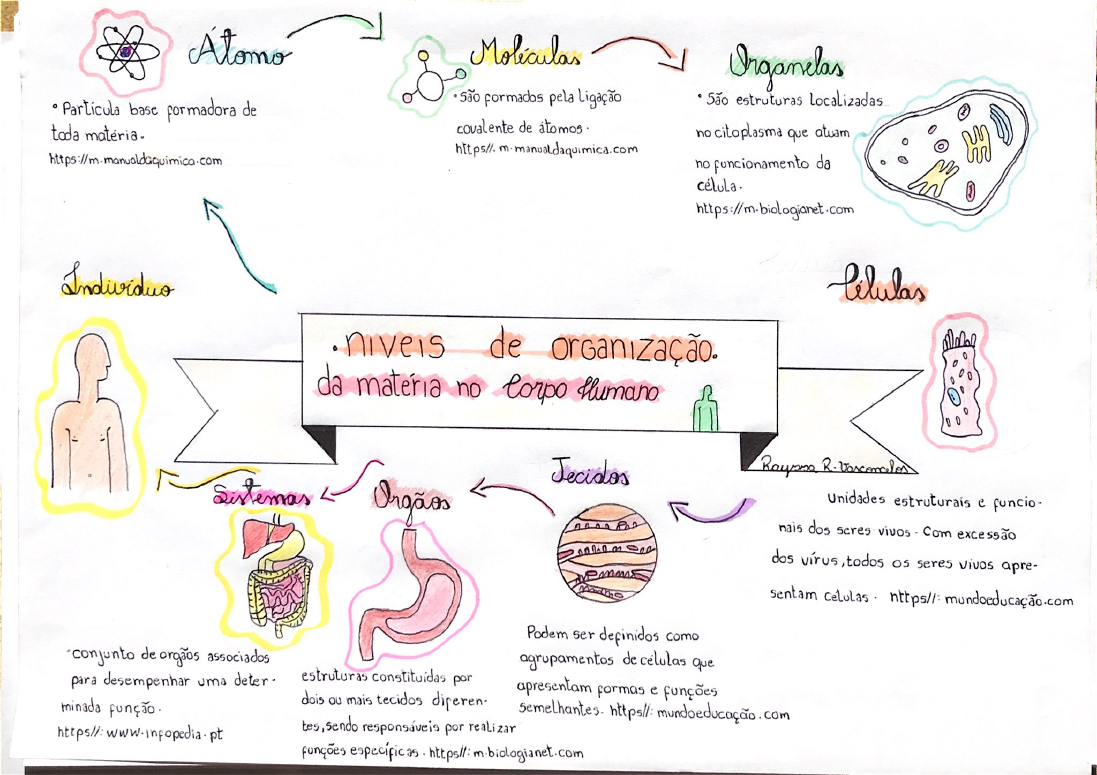 Átomo
• Partícula base formadora de
toda matéria.
https://m.manualdaquimica.com
Moléculas
• São formados pela Ligação
covalente de átomos.
https//. m.manualdaquimica.com
Organelas
• São estruturas Localizadas
no citoplasma que atuam
no funcionamento da
célula.
https://m.biologianet.com
Indivíduo
Células
• niveis de organização.
da matéria no Corpo Humano
Rayssa R. Vasconcelos
Unidades estruturais e funcio-
nais dos seres vivos. Com excessão
dos vírus, todos os seres vivos apre-
sentam celulas. https//: mundoeducação.com
Tecidos
Podem ser definidos como
agrupamentos de células que
apresentam formas e funções
semelhantes. https//: mundoeducação.com
Orgãos
estruturas constituídas por
dois ou mais tecidos diferen-
tes, sendo responsáveis por realizar
funções específicas. https//: m.biologianet.com
Sistemas
• conjunto de orgãos associados
para desempenhar uma deter-
minada função.
https//: www.infopedia.pt